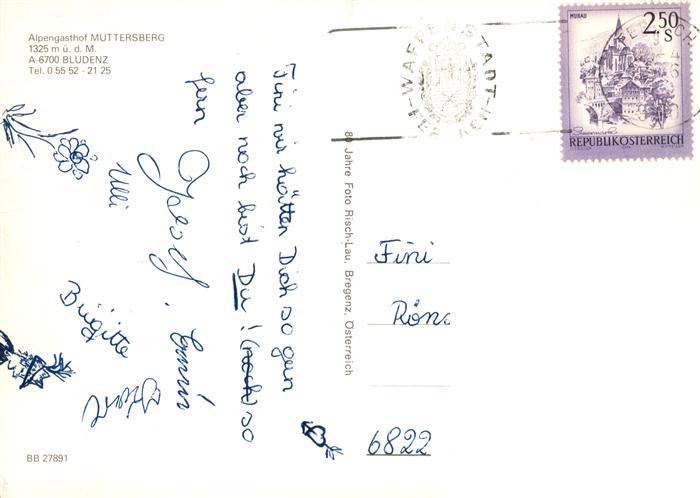 Alpengasthof MUTTERSBERG
1325 m ü. d. M.
A-6700 BLUDENZ
Tel. 0 55 52 - 21 25
Fini wir hätten Dich so gern
aber noch bist Du! (noch) so
fern
Josef,
Ulli
Brigitte
BB 27891
80 Jahre Foto Risch-Lau, Bregenz, Österreich
WAFFENSTADT
FERLACH
MURAU
2.50
S
REPUBLIK ÖSTERREICH
Fini
Röns
6822